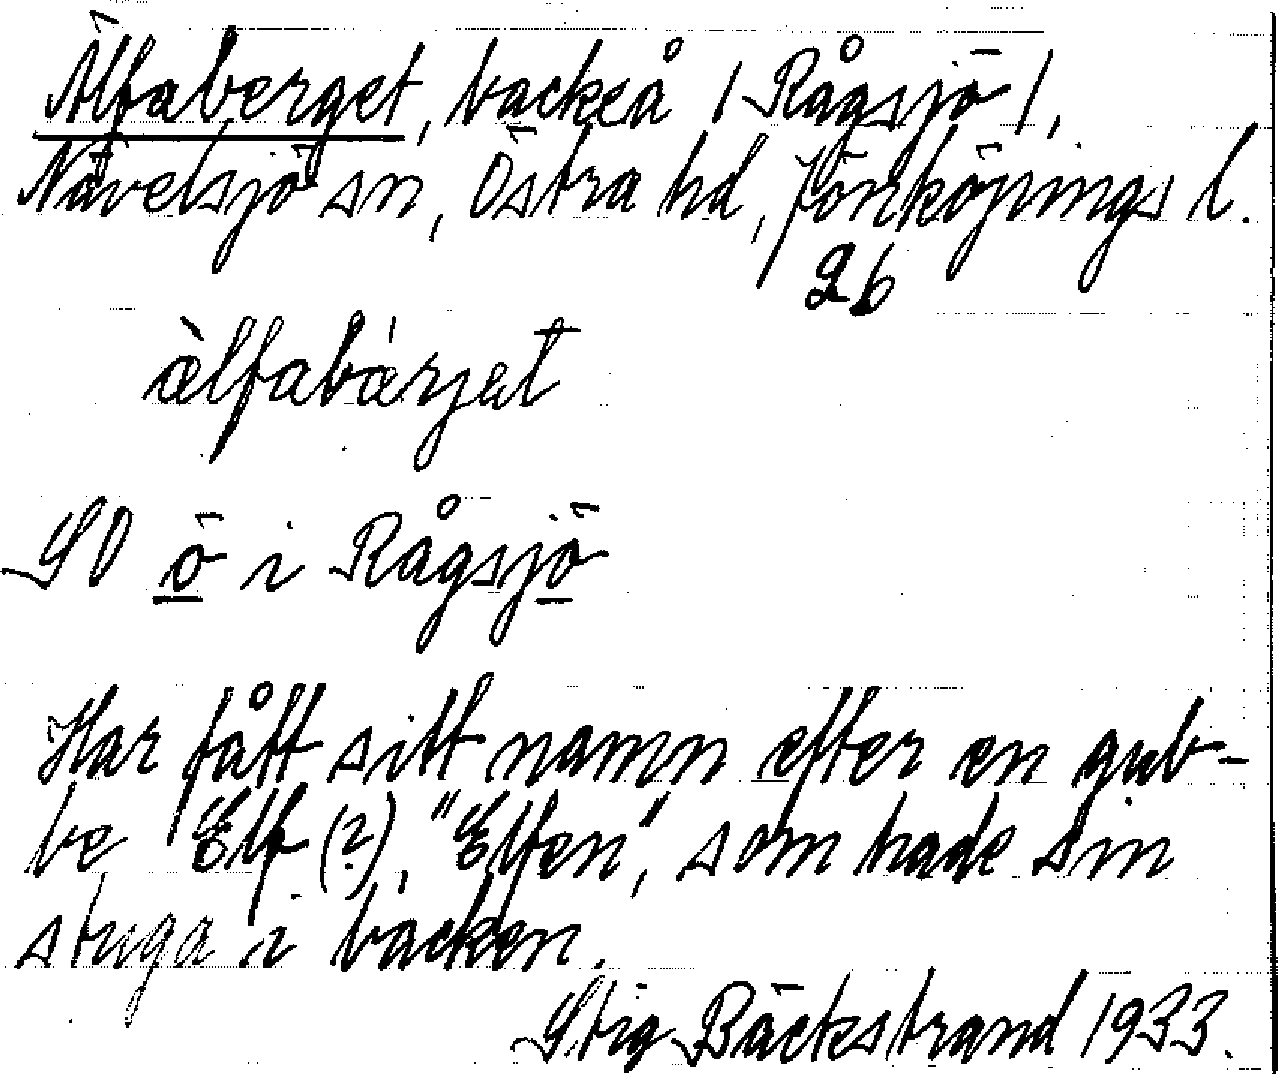 Älfaberget, backe å (Rågsjö),
Nävelsjö sn, Östra hd, Jönköpings l.
2b
ælfabærjet
SO ö i Rågsjö
Har fått sitt namn efter en gub-
be Elf (?), "Elfen", som hade sin
stuga i backen.
Stig Bäckstrand 1933.